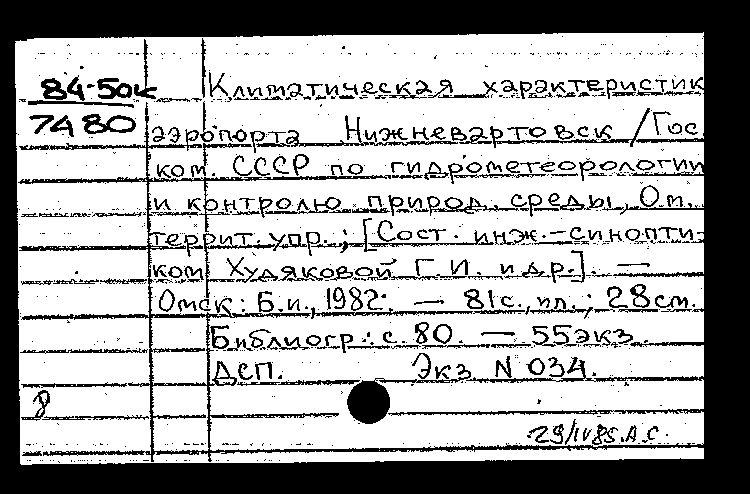 84-50к
7480
Климатическая характеристик
аэропорта Нижневартовск / Гос.
ком. СССР по гидрометеорологии
и контролю природ. среды, Ом.
террит. упр.; [Сост. инж.-синопти-
ком Худяковой Г.И. и др.]. —
Омск: Б.и., 1982. — 81с., ил.; 28см.
Библиогр.: с. 80. — 55экз.
ДСП. Экз N 034.
29/IV85. А.С.